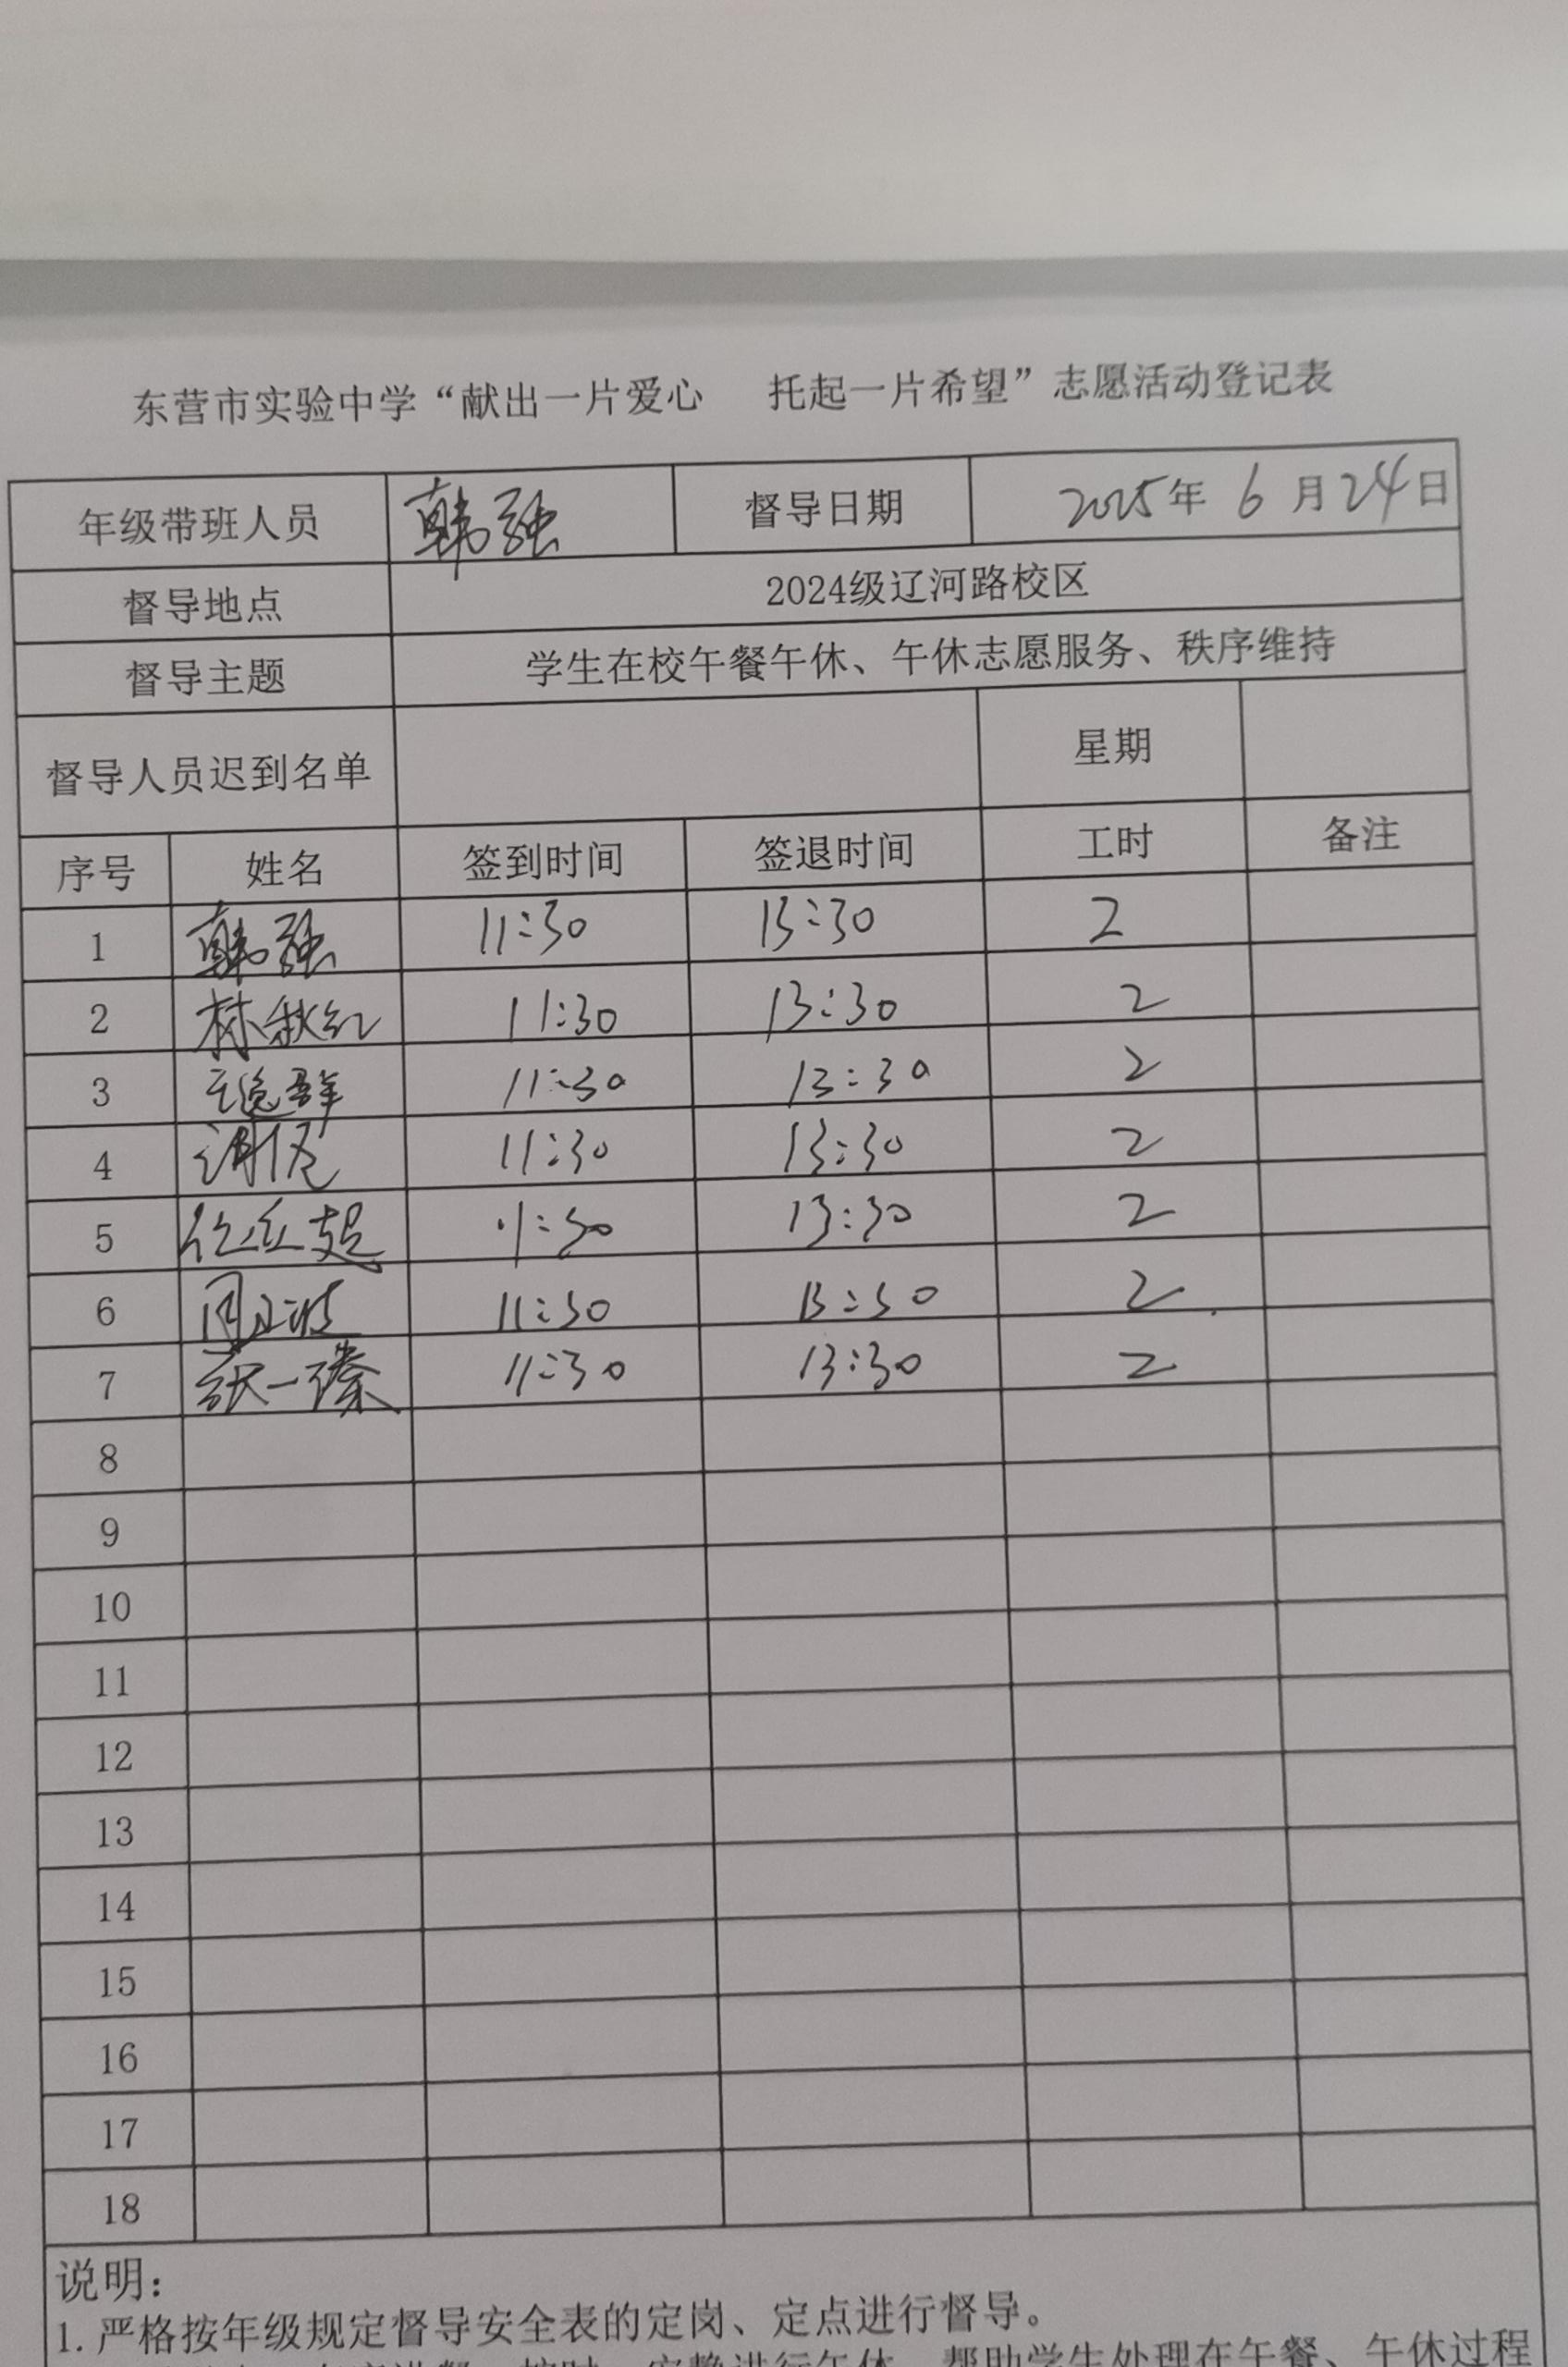 东营市实验中学“献出一片爱心 托起一片希望”志愿活动登记表
年级带班人员 韩强 督导日期 2025年 6 月 24 日
督导地点 2024级辽河路校区
督导主题 学生在校午餐午休、午休志愿服务、秩序维持
督导人员迟到名单 星期
序号 姓名 签到时间 签退时间 工时 备注
1 韩强 11:30 13:30 2
2 林秋红 11:30 13:30 2
3 11:30 13:30 2
4 11:30 13:30 2
5 11:30 13:30 2
6 周正波 11:30 13:30 2
7 张一臻 11:30 13:30 2
8
9
10
11
12
13
14
15
16
17
18
说明：
1. 严格按年级规定督导安全表的定岗、定点进行督导。
帮助学生处理在午餐、午休过程